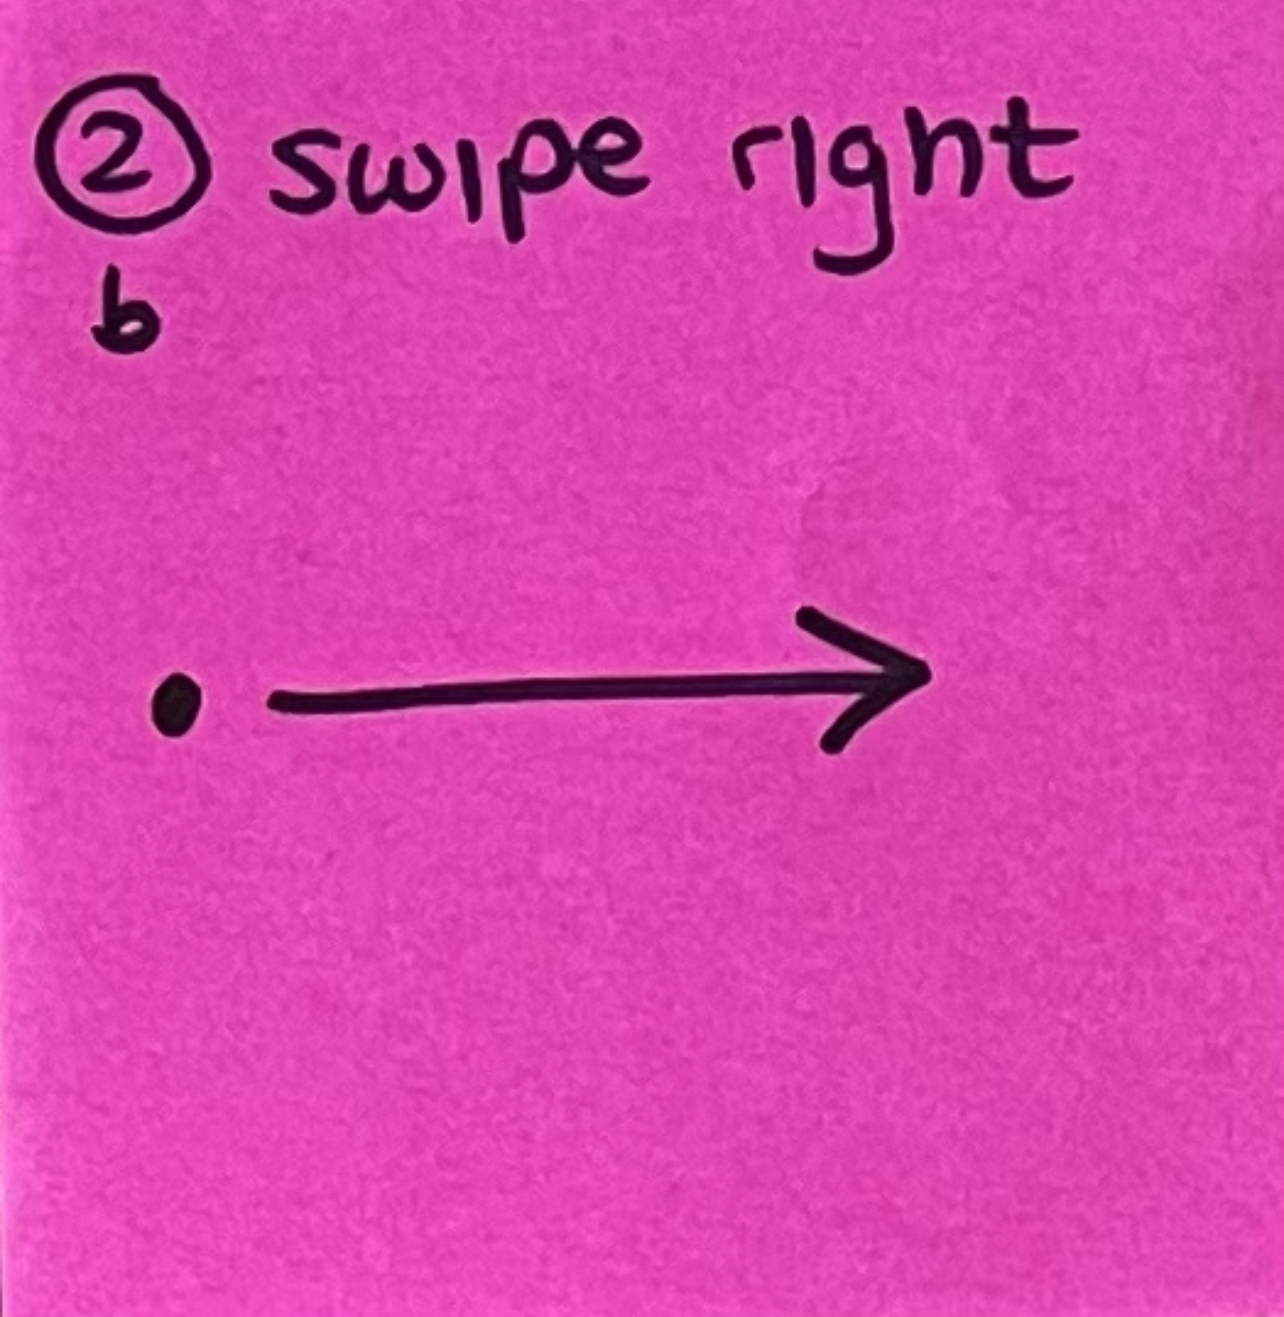 ② swipe right
b